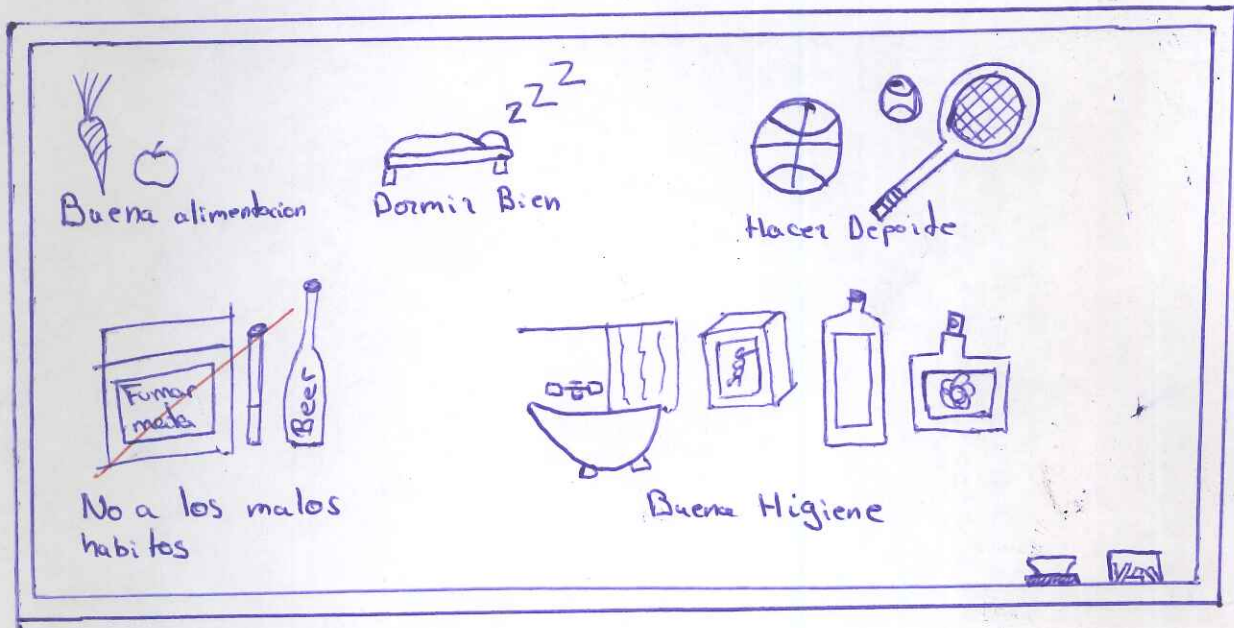 z z Z
Buena alimentacion
Dormir Bien
Hacer Deporte
Fumar
mata
Beer
No a los malos
habitos
Buena Higiene